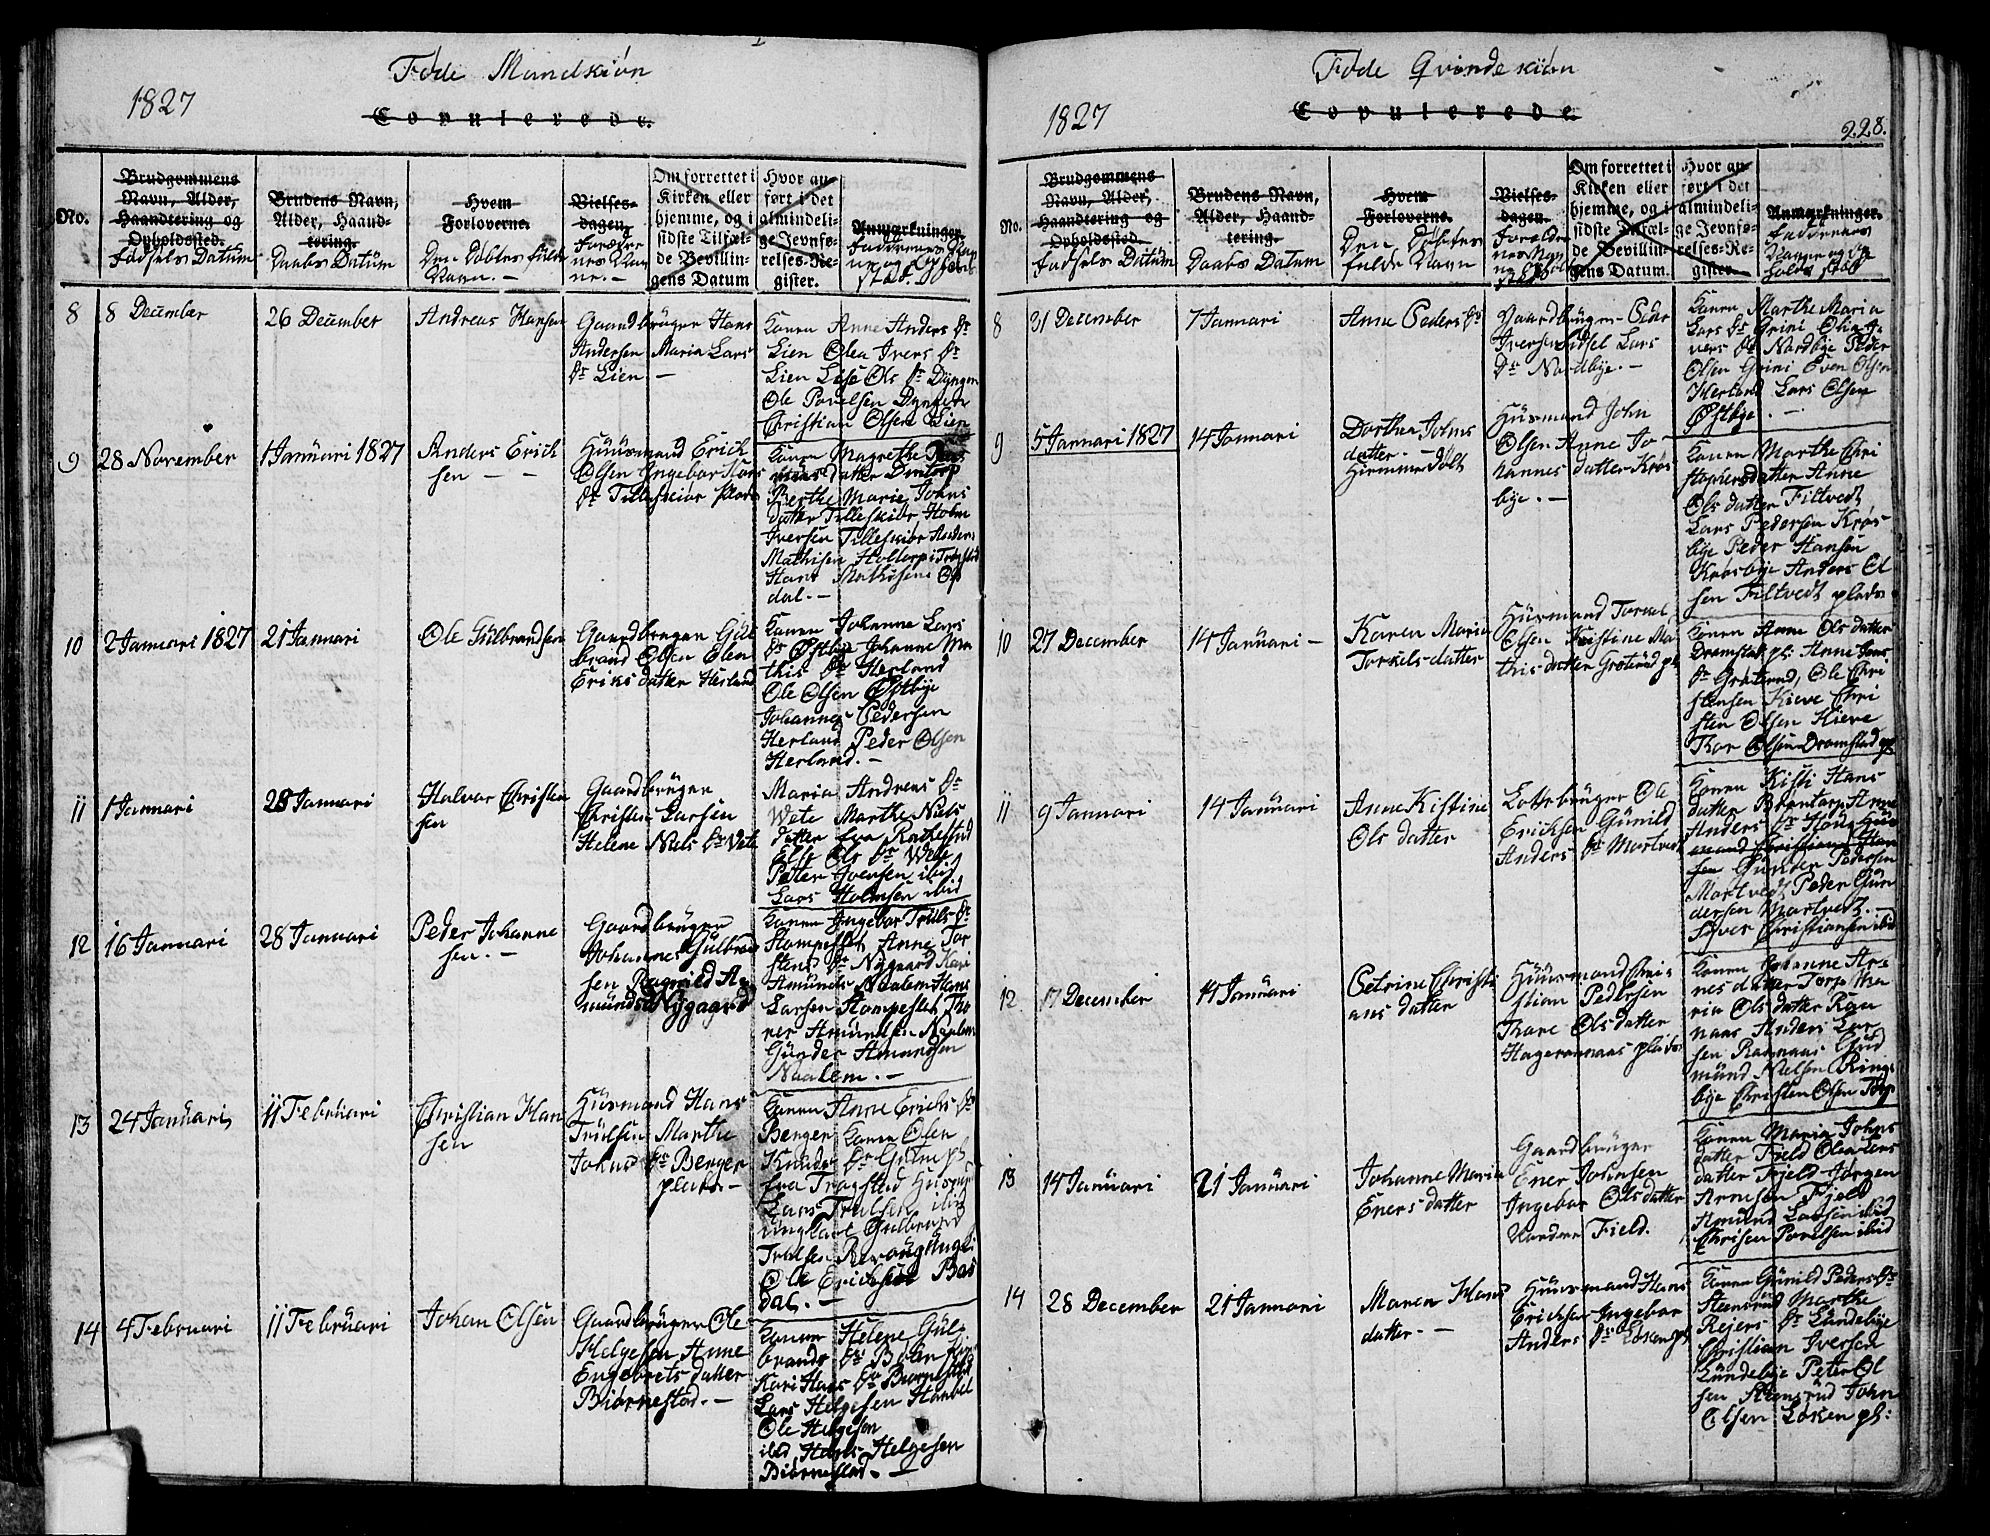 Føde Mandskiøn
1827
Copulerede.
No.
Brudgommens Navn, Alder, Haandtering og Opholdssted.
Fødsels Datum
Brudens Navn, Alder, Haandtering.
Daabs Datum
Hvem Forloverne.
Den Døbtes fulde Navn. -
Vielses-dagen.
Forældrenes Navne. -
Om forrettet i Kirken eller hjemme, og i sidste Tilfælde Bevillingens Datum
Hvor anført i det almindelige Jevnførelses-Register.
Anmærkninger.
8
8 December
26 December
Andreas Hansen
Gaardbrüger Hans
Andersen Maria Lars
Dr Lien -
Konen Anne Anders Dr
Lien Olea Ivers Dr
Lien Lise Ols Dr
Ole Povelsen
Christian Olsen Lien
9
28 November
1 Janüari 1827
Anders Erich
sen -
Hüüsmand Erich
Olsen Ingebor Hans
Dr Tilleskiør
Konen Magrethe
datter
Berthe Marie Johns
datter Tilleskiør Holm
Iversen Tilleskiør Anders
Mathisen Holtorp i Trøgstad
Hans Mathisen
dal. -
10
2 Januari 1827
21 Januari
Ole Gülbrandsen
Gaardbruger Gül
brand Olsen Elen
Eriks datter Herland
Konen Johanne Lars
Dr Østbye Johanne Ma
this Dr Herland
Ole Olsen Østbye
Johannes Pedersen
Herland Peder Olsen
Herland. -
11
1 Januari
28 Januari
Halvor Christen
sen
Gaardbrüger
Christen Larsen
Helene Niels Dr Vete
Maria Andreas Dr
Wete Marthe Niels
datter fra Rakkestad
Else Ols Dr Wete
Peter Iversen ibid
Lars Holmsen ibid
12
16 Januari
28 Januari
Peder Johanne
sen. -
Gaardbrüger
Johannes Gülbrand
sen Ragnild A
münds Nÿgaard
Konen Ingebor Trüls Dr
Anne Tor
stens Dr Nÿgaard Kari
Amünds Naalem Hans
Larsen
Amündsen Naalem
Günder Amundsen
Naalem. -
13
24 Januari
11 Februari
Christian Han
sen
Hüüsmand Hans
Trülsen Marthe
Johns Dr Berger
plads. -
Konen Anne Erichs Dr
Berger Konen Olea
Knuds Dr
fra Trøgstad
Lars Trülsen ibid
ungkarl Gulbrand
Trulsen
Ole Erichsen Bas
dal. -
14
4 Februari
11 Februari
Johan Olsen
Gaardbrüger Ole
Helgesen Anne
Engebrets datter
Biørnestad. -
Konen Helene Gül
brands Dr
Kari Hans Dr Biørnestad
Lars Helgesen
Ole Helgesen
ibid Hans Helgesen
Biørnestad. -
Føde Qvindeskiøn
1827
Copulerede.
228.
No.
Brudgommens Navn, Alder, Haandtering og Opholdssted.
Fødsels Datum
Brudens Navn, Alder, Haandtering.
Daabs Datum
Hvem Forloverne.
Den Døbtes fulde Navn
Vielses-dagen.
Om forrettet i Kirken eller hjemme, og i sidste Tilfælde Bevillingens Datum.
Hvor anført i det almindelige Jevnførelses-Register.
Anmærkninger.
8
31 December
7 Januari
Anne Peders Dr
Gaardbrüger Peder
Iversen Sidsel Lars
Dr Nordbÿe. -
Konen Marthe Maria
Lars Dr Grini Olea I
vers Dr Nordbÿe Peder
Olsen Grini Even Olsen
Herland Lars Olsen
Østbÿe. -
9
5 Januari 1827
14 Januari
Dorthea Johns
datter. -
Hiemmedøbt
Hüsmand John
Olsen Anne Jo
hannes datter Krøs
bÿe. -
Konen Marthe Chri
stophersdatter Anne
Ols datter Filtvedt
Lars Pedersen Krøs
bÿe Peder Hansen
Krøsbÿe Anders Ol
sen Filtvedt plads
10
27 December
14 Januari -
Karen Maria
Torkels datter
Hüsmand Torkel
Olsen Kristine Ma
this datter Grøtrüd pl
Konen Anne Ols datter
Dramstad pl: Anne Jens
Dr Grøtrud, Ole Chri
stensen Kieve Chri
sten Olsen Kieve
Thor Olsen Dramstad pl
11
9 Januari
14 Januari
Anne Kistine
Ols datter
Lottsbrüger Ole
Ericksen Günild
Anders Dr Martvedt
Konen Kisti Hans
datter Anne
Anders Dr
Günder Pedersen
Martvedt Peder Gün
dersen Martvedt. -
Sÿver Christiansen ibid
12
17 December
14 Januari
Petrine Christi
ans datter
Hüüsmand Chri
stian Pedersen
Thore Ols datter
Hageranaas plads
Konen Johanne Ar-
nes datter Torp Ma
ria Ols datter
naas Anders Lar
sen Gud
münd Nielsen Ring
bÿe Christen Olsen Torp
13
14 Janüari
21 Januari
Johanne Maria
Eners datter
Gaardbrüger
Ener Johnsen
Ingebor Ols datter
Nordre Field.
Konen Maria Johns
datter Field Olea Lars
datter Fjeld Jørgen
Arnesen Fjeld
Amund Larsen ibid
Christen Povelsen ibid
14
28 December
21 Januari
Maren Hans
datter. -
Hüüsmand Hans
Erichsen Ingebor
Anders Dr Løken pl
Konen Günild Peders Dr
Steensrüd Marthe
Reiers Dr Lundebÿe
Christian Iversen
Lündebÿe Peter Ol
sen Steensrüd John
Olsen Løken pl: